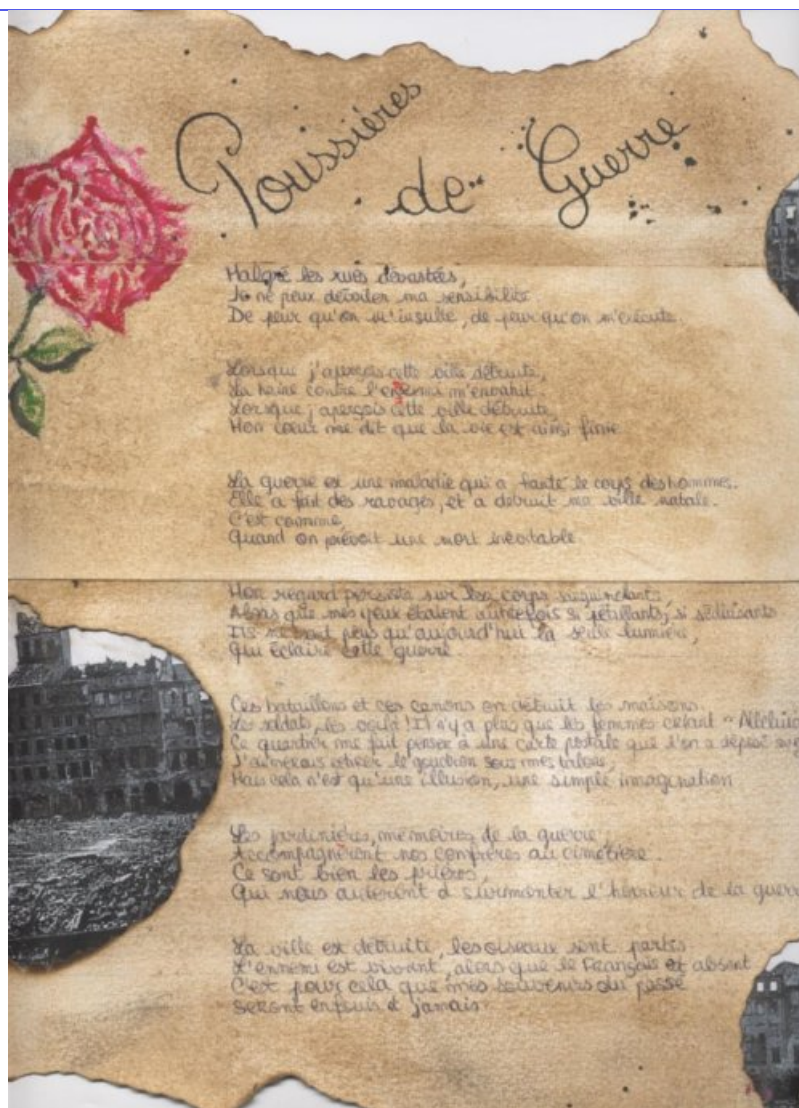 Poussières
de Guerre
Malgré les rues dévastées,
Je ne peux dévoiler ma sensibilité
De peur qu'on m'insulte, de peur qu'on m'exécute.
Lorsque j'aperçois cette ville détruite,
La haine contre l'ennemi m'envahit.
Lorsque j'aperçois cette ville détruite,
Mon coeur me dit que la vie est ainsi finie
La guerre est une maladie qui a hanté le corps des hommes.
Elle a fait des ravages, et a détruit ma ville natale.
C'est comme,
Quand on prévoit une mort inévitable.
Mon regard persiste sur les corps
Alors que mes yeux étaient autrefois si pétillants, si séduisants
Ils ne sont plus qu'aujourd'hui la seule lumière,
Qui éclaire cette guerre
Ces bataillons et ces canons on détruit les maisons.
Les soldats, les voilà! Il n'y a plus que les femmes
Ce quartier me fait penser à une carte postale que l'on a déposé
J'aimerais le goudron sous mes talons,
Mais cela n'est qu'une illusion, une simple imagination
Les jardinières, mémoires de la guerre
Accompagneront nos confrères au cimetière.
Ce sont bien les prières,
Qui nous aideront à surmonter l'horreur de la
La ville est détruite, les oiseaux sont partis
L'ennemi est vivant, alors que le Français est absent
C'est pour cela que mes souvenirs du passé
Seront enfouis à jamais.